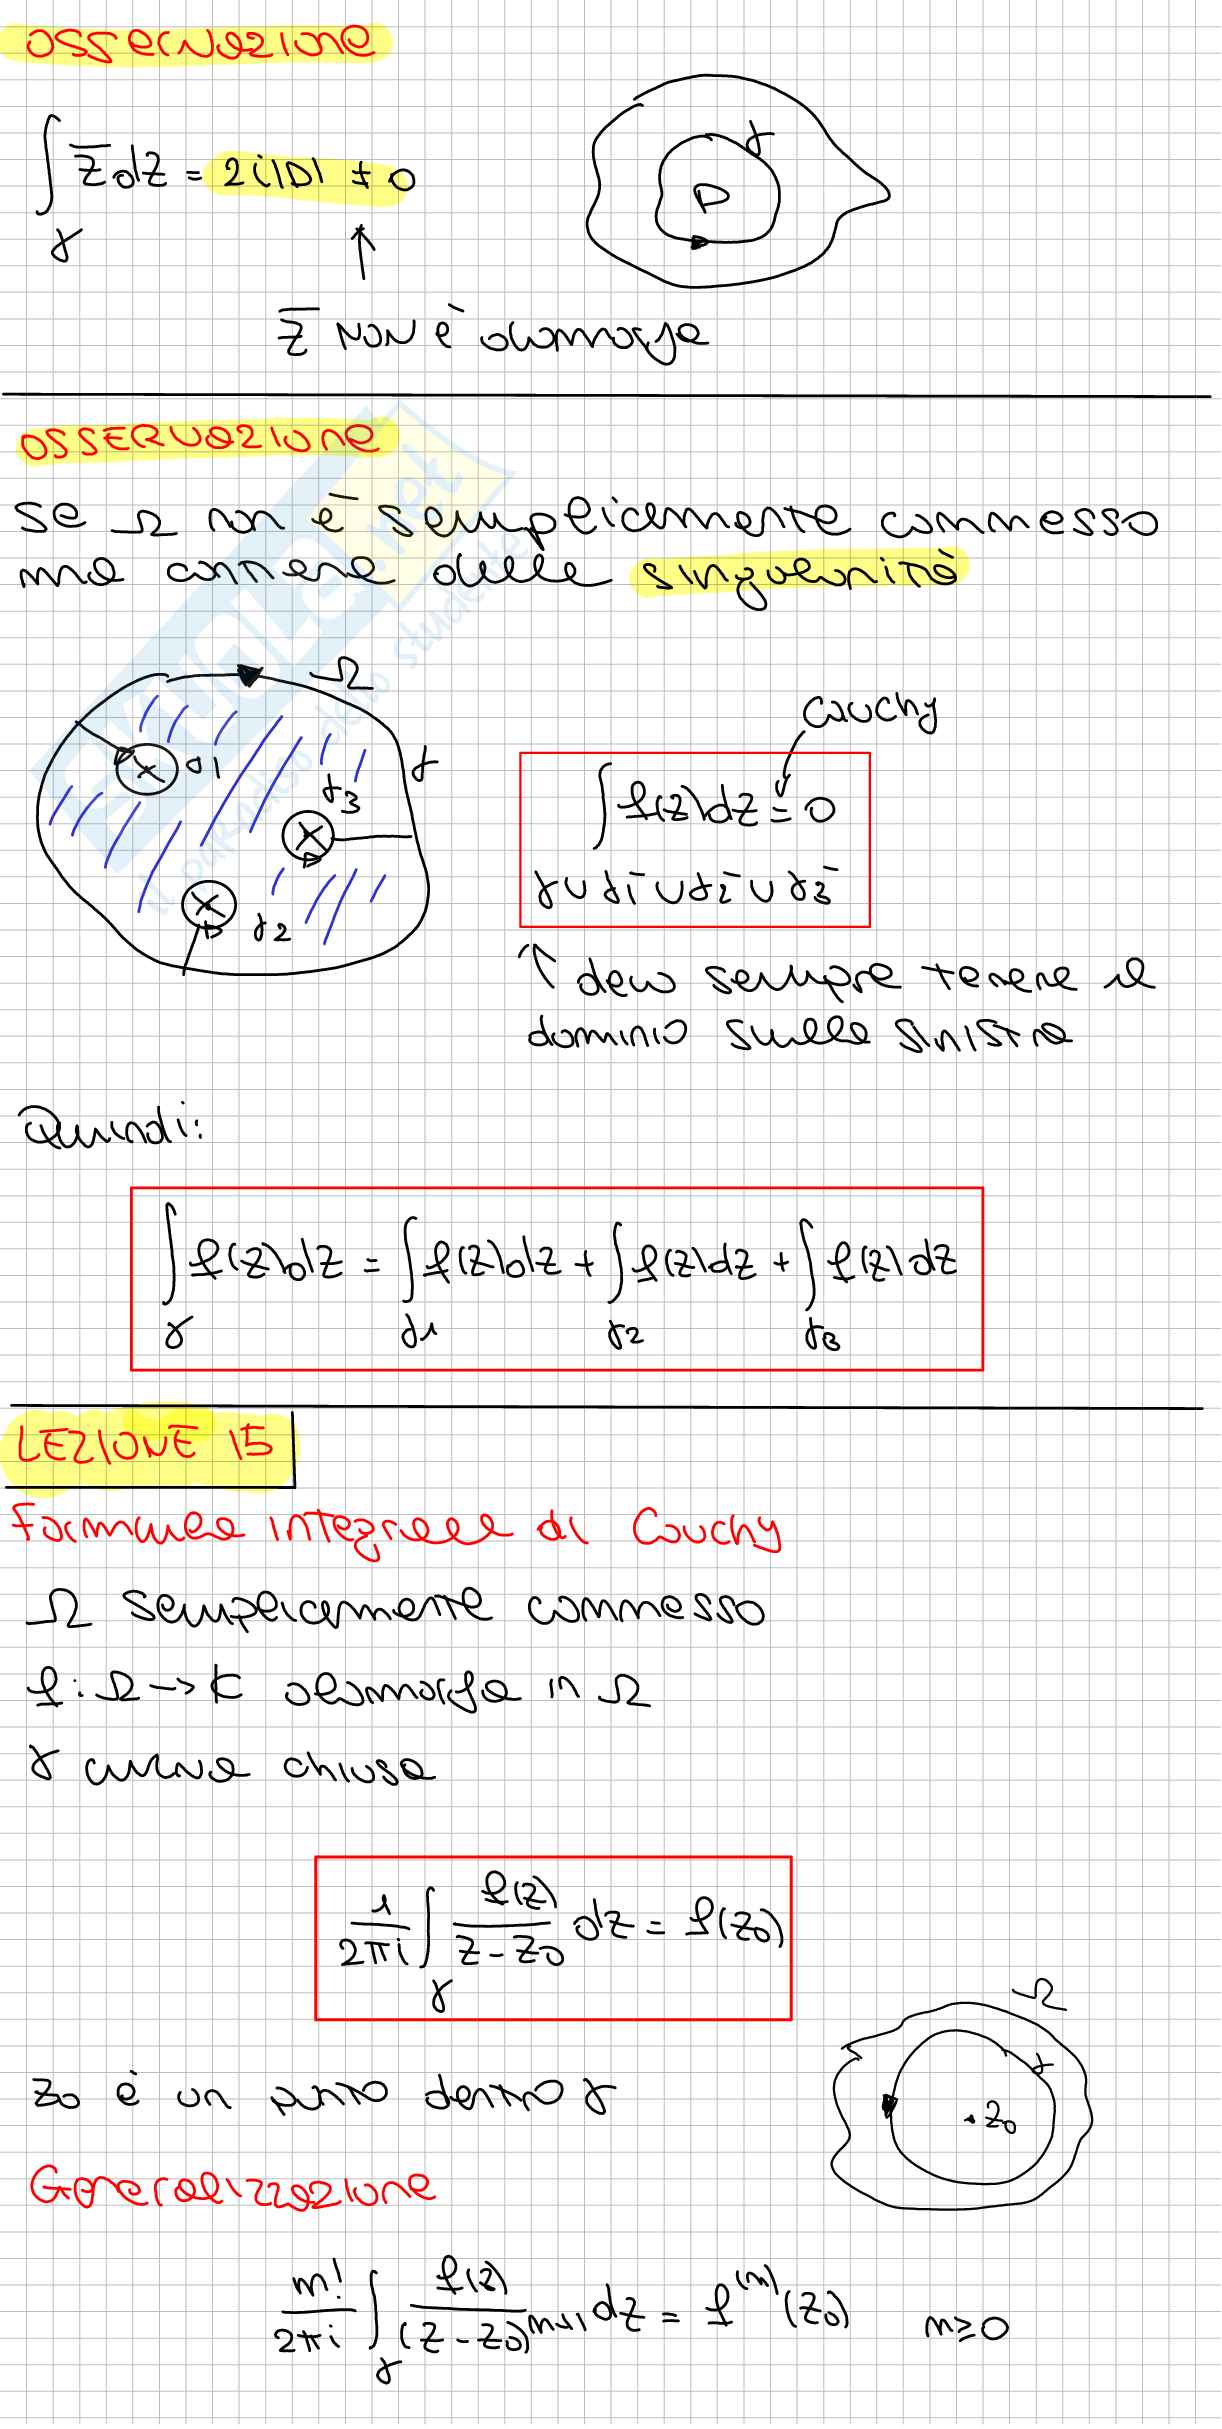 OSSERVAZIONE
∫γ z̄ dz = 2i|D| ≠ 0
γ
D
↑
z̄ NON è olomorfa
OSSERVAZIONE
se Ω non è semplicemente connesso
ma contiene delle singolarità
Ω
γ
γ1
γ3
γ2
Cauchy
∫ f(z)dz = 0
γ∪γ1⁻∪γ2⁻∪γ3⁻
↑ devo sempre tenere il
dominio sulla sinistra
Quindi:
∫γ f(z)dz = ∫γ1 f(z)dz + ∫γ2 f(z)dz + ∫γ3 f(z)dz
LEZIONE 15
Formula integrale di Cauchy
Ω semplicemente connesso
f: Ω → ℂ olomorfa in Ω
γ curva chiusa
1/2πi ∫γ f(z)/(z-z0) dz = f(z0)
Ω
γ
z0
z0 è un punto dentro γ
Generalizzazione
n!/2πi ∫γ f(z)/(z-z0)^(n+1) dz = f^(n)(z0) n≥0